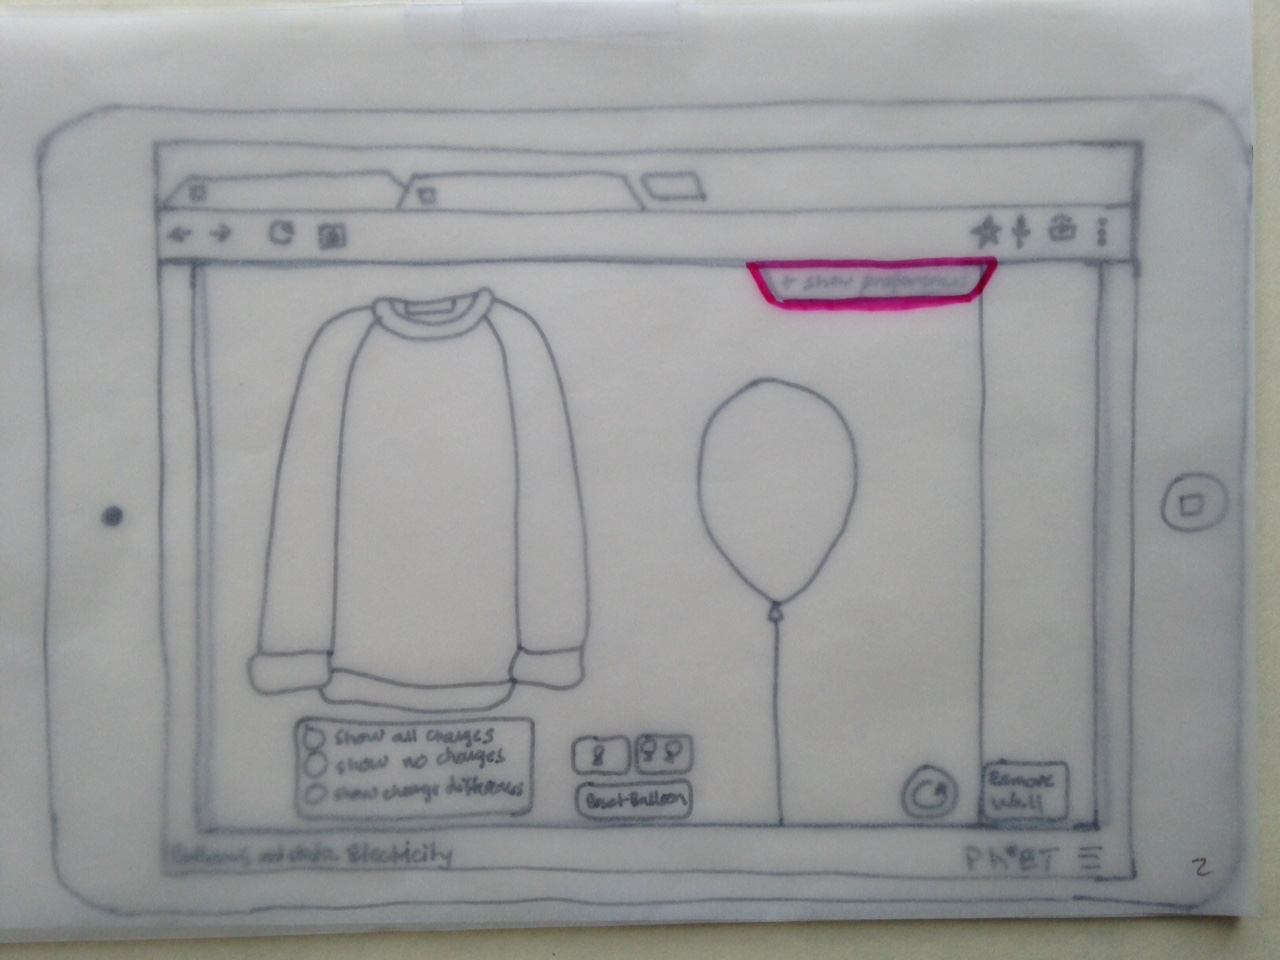 + show preferences
show all charges
show no charges
show charge differences
Reset Balloon
Remove
Wall
Balloons and static Electricity
PhET
2